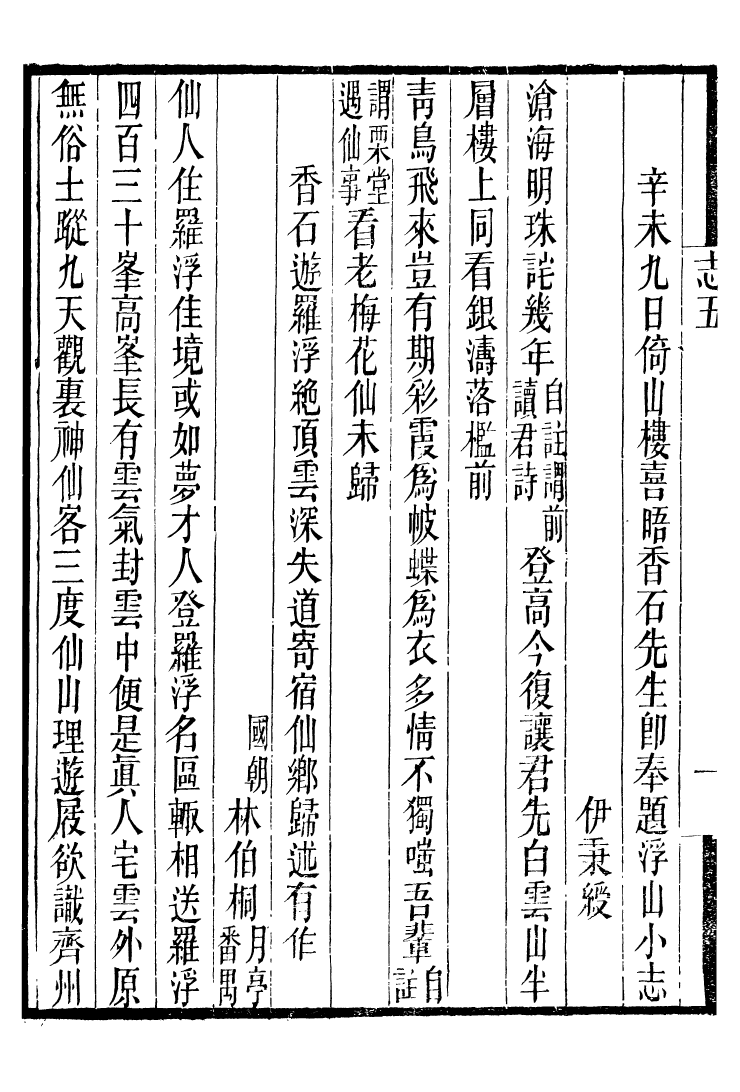 志五
一
辛未九日倚山樓喜晤香石先生卽奉題浮山小志
伊秉綬
滄海明珠詫幾年自註謂前讀君詩登高今復讓君先白雲山半
層樓上同看銀濤落檻前
靑鳥飛來豈有期彩霞爲帔蝶爲衣多情不獨嗤吾輩自註
謂栗堂遇仙事看老梅花仙未歸
香石遊羅浮絶頂雲深失道寄宿仙鄉歸述有作
國朝林伯桐月亭番禺
仙人住羅浮佳境或如夢才人登羅浮名區輙相送羅浮
四百三十峯高峯長有雲氣封雲中便是眞人宅雲外原
無俗士蹤九天觀裏神仙客三度仙山理遊屐欲識齊州